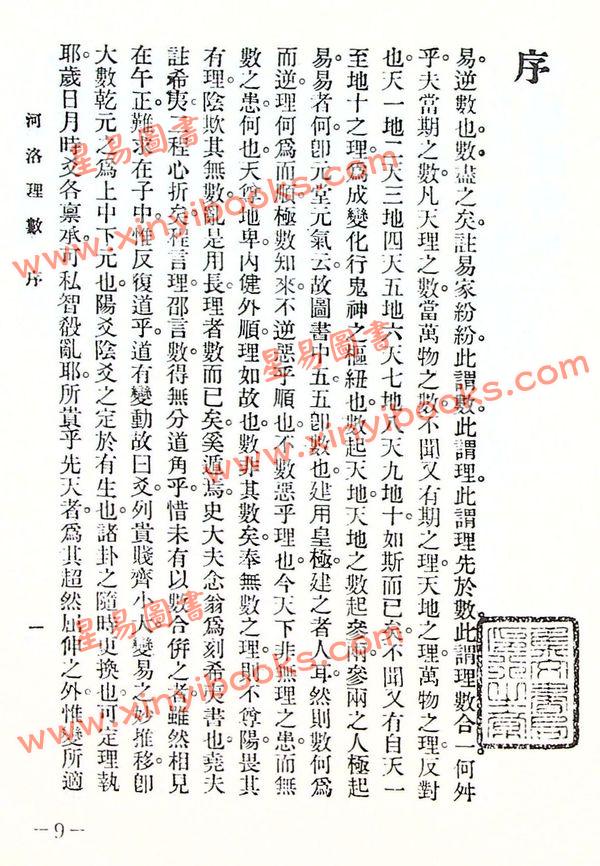 序
易逆數也。數盡之矣。註易家紛紛。此謂數。此謂理。此謂理先於數。此謂理數合一。何舛
乎。夫當期之數。凡天理之數。當萬物之數。不聞又有期之理。天地之理。萬物之理。反對
也。天一地二天三地四天五地六天七地八天九地十。如斯而已矣。不聞又有自天一
至地十之理。爲成變化行鬼神之樞紐也。數起天地。天地之數起參兩。參兩之人極起
易。易者何。卽元堂元氣云。故圖書中五。五卽數也。建用皇極。建之者人耳。然則數何爲
而逆。理何爲而順。極數知來。不逆惡乎順也。不數惡乎理也。今天下非無理之患。而無
數之患。何也。天尊地卑。內健外順。理如故也。數非其數矣。奉無數之理。則不尊陽畏其
有理。陰欺其無數。亂是用長。理者數而已矣。奚遁焉。史大夫念翁爲刻希夷書也。堯夫
註希夷。二程心折矣。程言理。邵言數。得無分道角乎。惜未有以數合併之者。雖然。相見
在午正。難求在子中。惟反復道乎。道有變動。故曰爻。列貴賤。齊小大。變易之妙。推移卽
大數。乾元之爲上中下元也。陽爻陰爻之定於有生也。諸卦之隨時更換也。可定理執
耶。歲日月時爻各禀承。可私智殺亂耶。所貴乎先天者。爲其超然屈伸之外。惟變所適
河洛理數 序
一
—9—
星易圖書
www.xinyibooks.com
星易圖書
www.xinyibooks.com
星易圖書
www.xinyibooks.com
星易圖書
www.xinyibooks.com